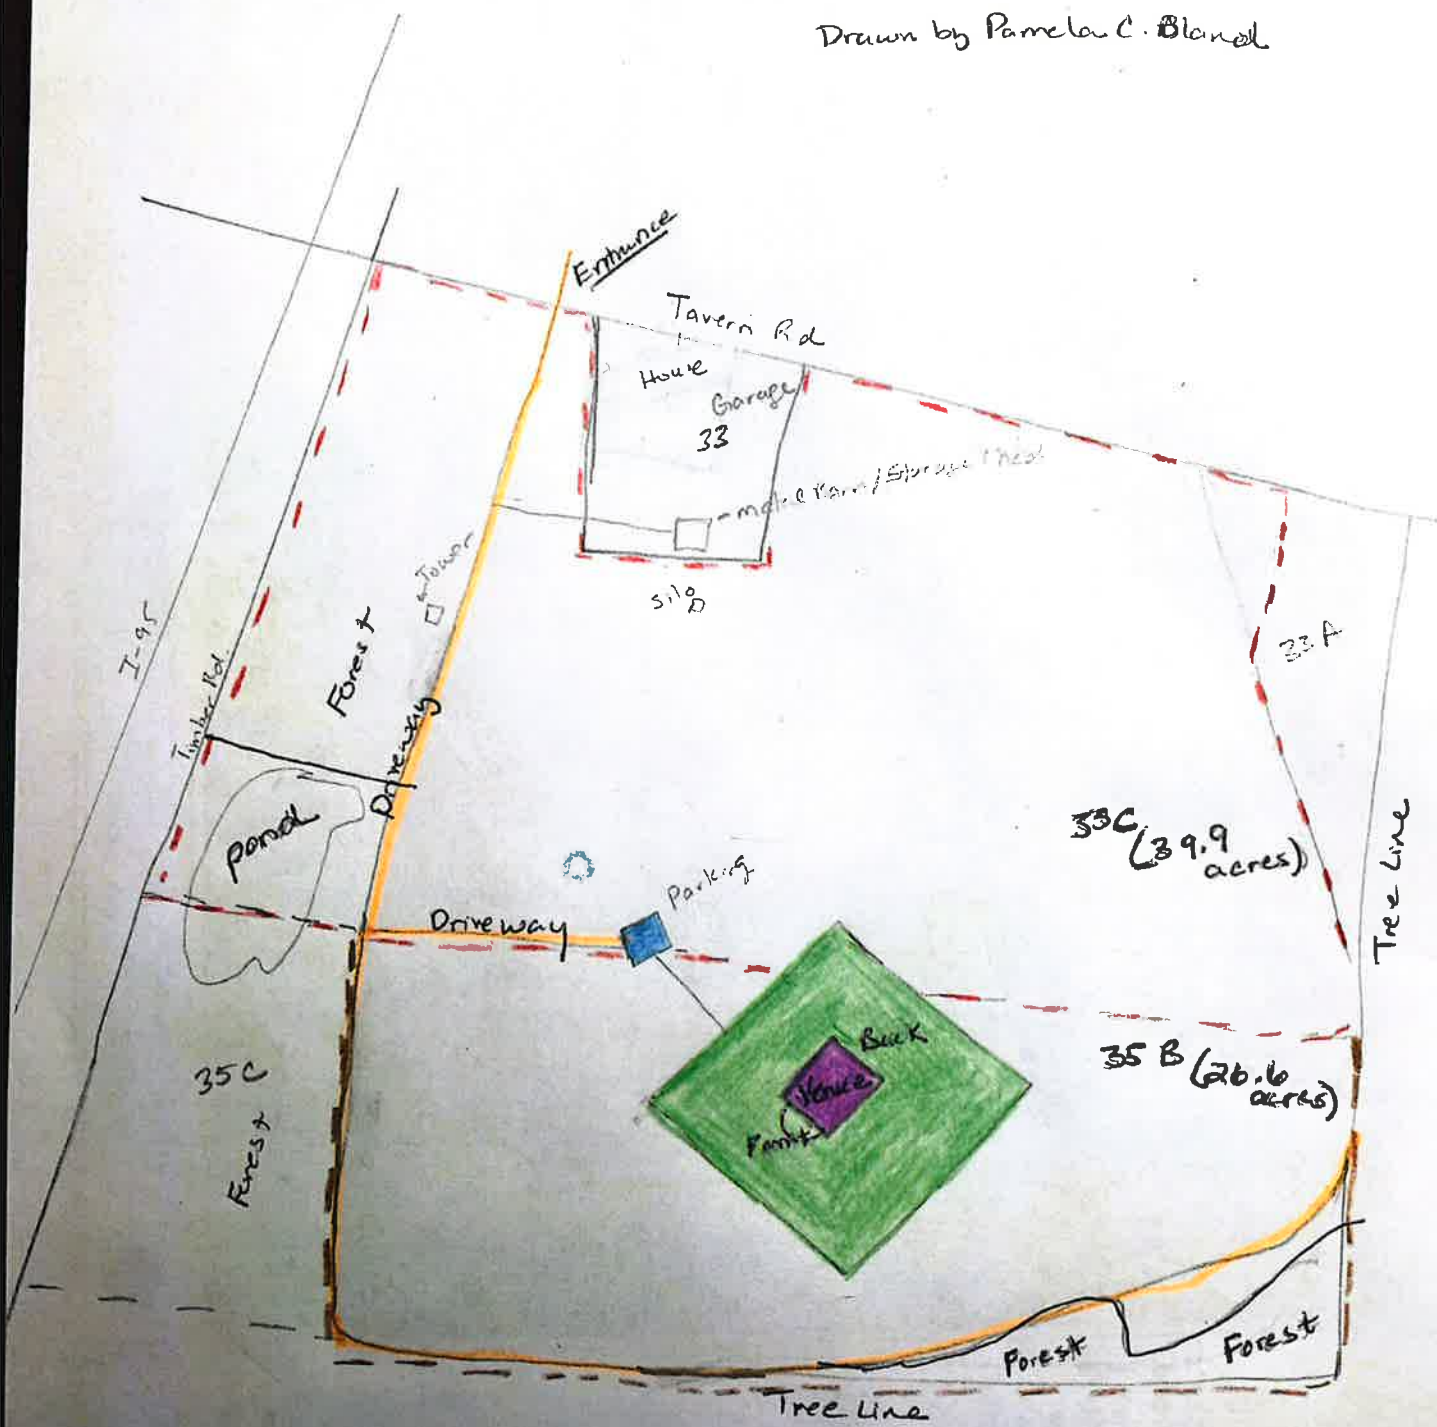 Drawn by Pamela C. Bland
Entrance
Tavern Rd
House
Garage
33
- metal Barn/Storage Shed
Silo
Tower
I-95
Timber Rd.
Forest
Driveway
pond
33A
33C
(39.9
acres)
Tree Line
Parking
Driveway
Back
Venue
Front
35 B (26.6
acres)
35C
Forest
Forest
Forest
Tree Line